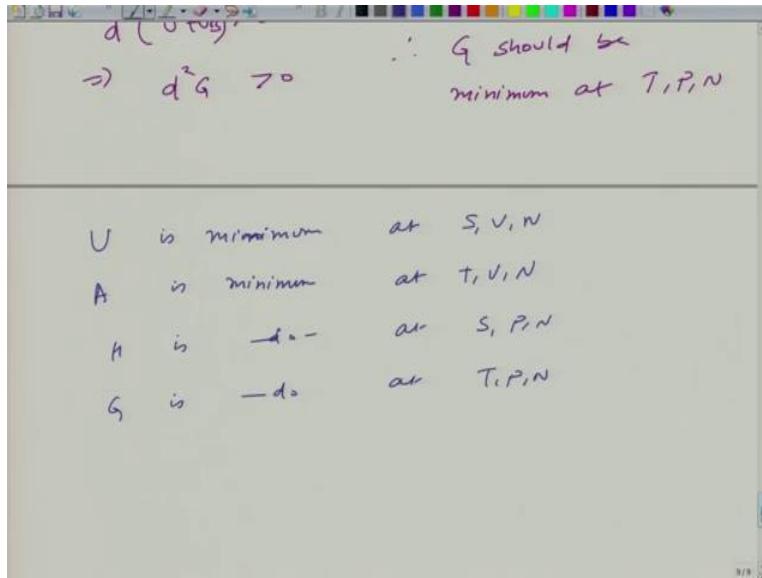 =) d²G >0
∴ G should be
minimum at T, P, N
U is minimum at S, V, N
A is minimum at T, V, N
H is —do— at S, P, N
G is —do at T, P, N
9/9